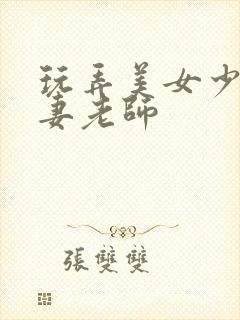 玩弄美女少
妻老師
張雙雙